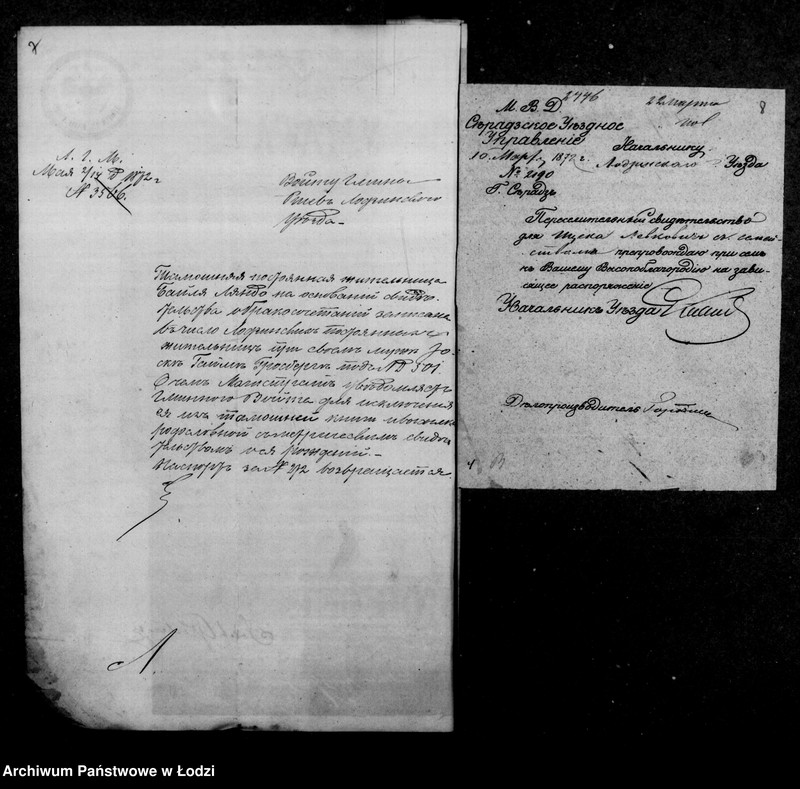 Л. Г. М.
Мая 2/14 Д. 1872 г
№ 3506.
Войту Гмины
Лодзинского
Уѣзда
Тамошняя постоянная жительница
Байля Ляндо на основаніи свидѣ
тельства о бракосочетаніи записана
въ число Лодзинскихъ постоянныхъ
жительницъ при своемъ мужѣ
Гросбергъ подъ № Д 501
О чемъ Магистратъ увѣдомляетъ
Гминнаго Войта для исключенія
ея изъ тамошней книги и высылки
родословной съ метрическимъ свидѣ
тельствомъ о ея рожденіи.
Паспортъ за № 372 возвращается.
М. В. Д. 2446
22 Марта
8
Сѣрадзское Уѣздное
Управленіе
10 Марта 1872 г.
№ 2190
Г. Сѣрадзь
Начальнику
Лодзинскаго Уѣзда
Переселительный свидѣтельство
для Ицека Левковичъ съ семей-
ствомъ препровождаю при семъ
къ Вашему Высокоблагородію на зави-
сящее распоряженіе
Начальникъ Уѣзда
Дѣлопроизводитель
Archiwum Państwowe w Łodzi